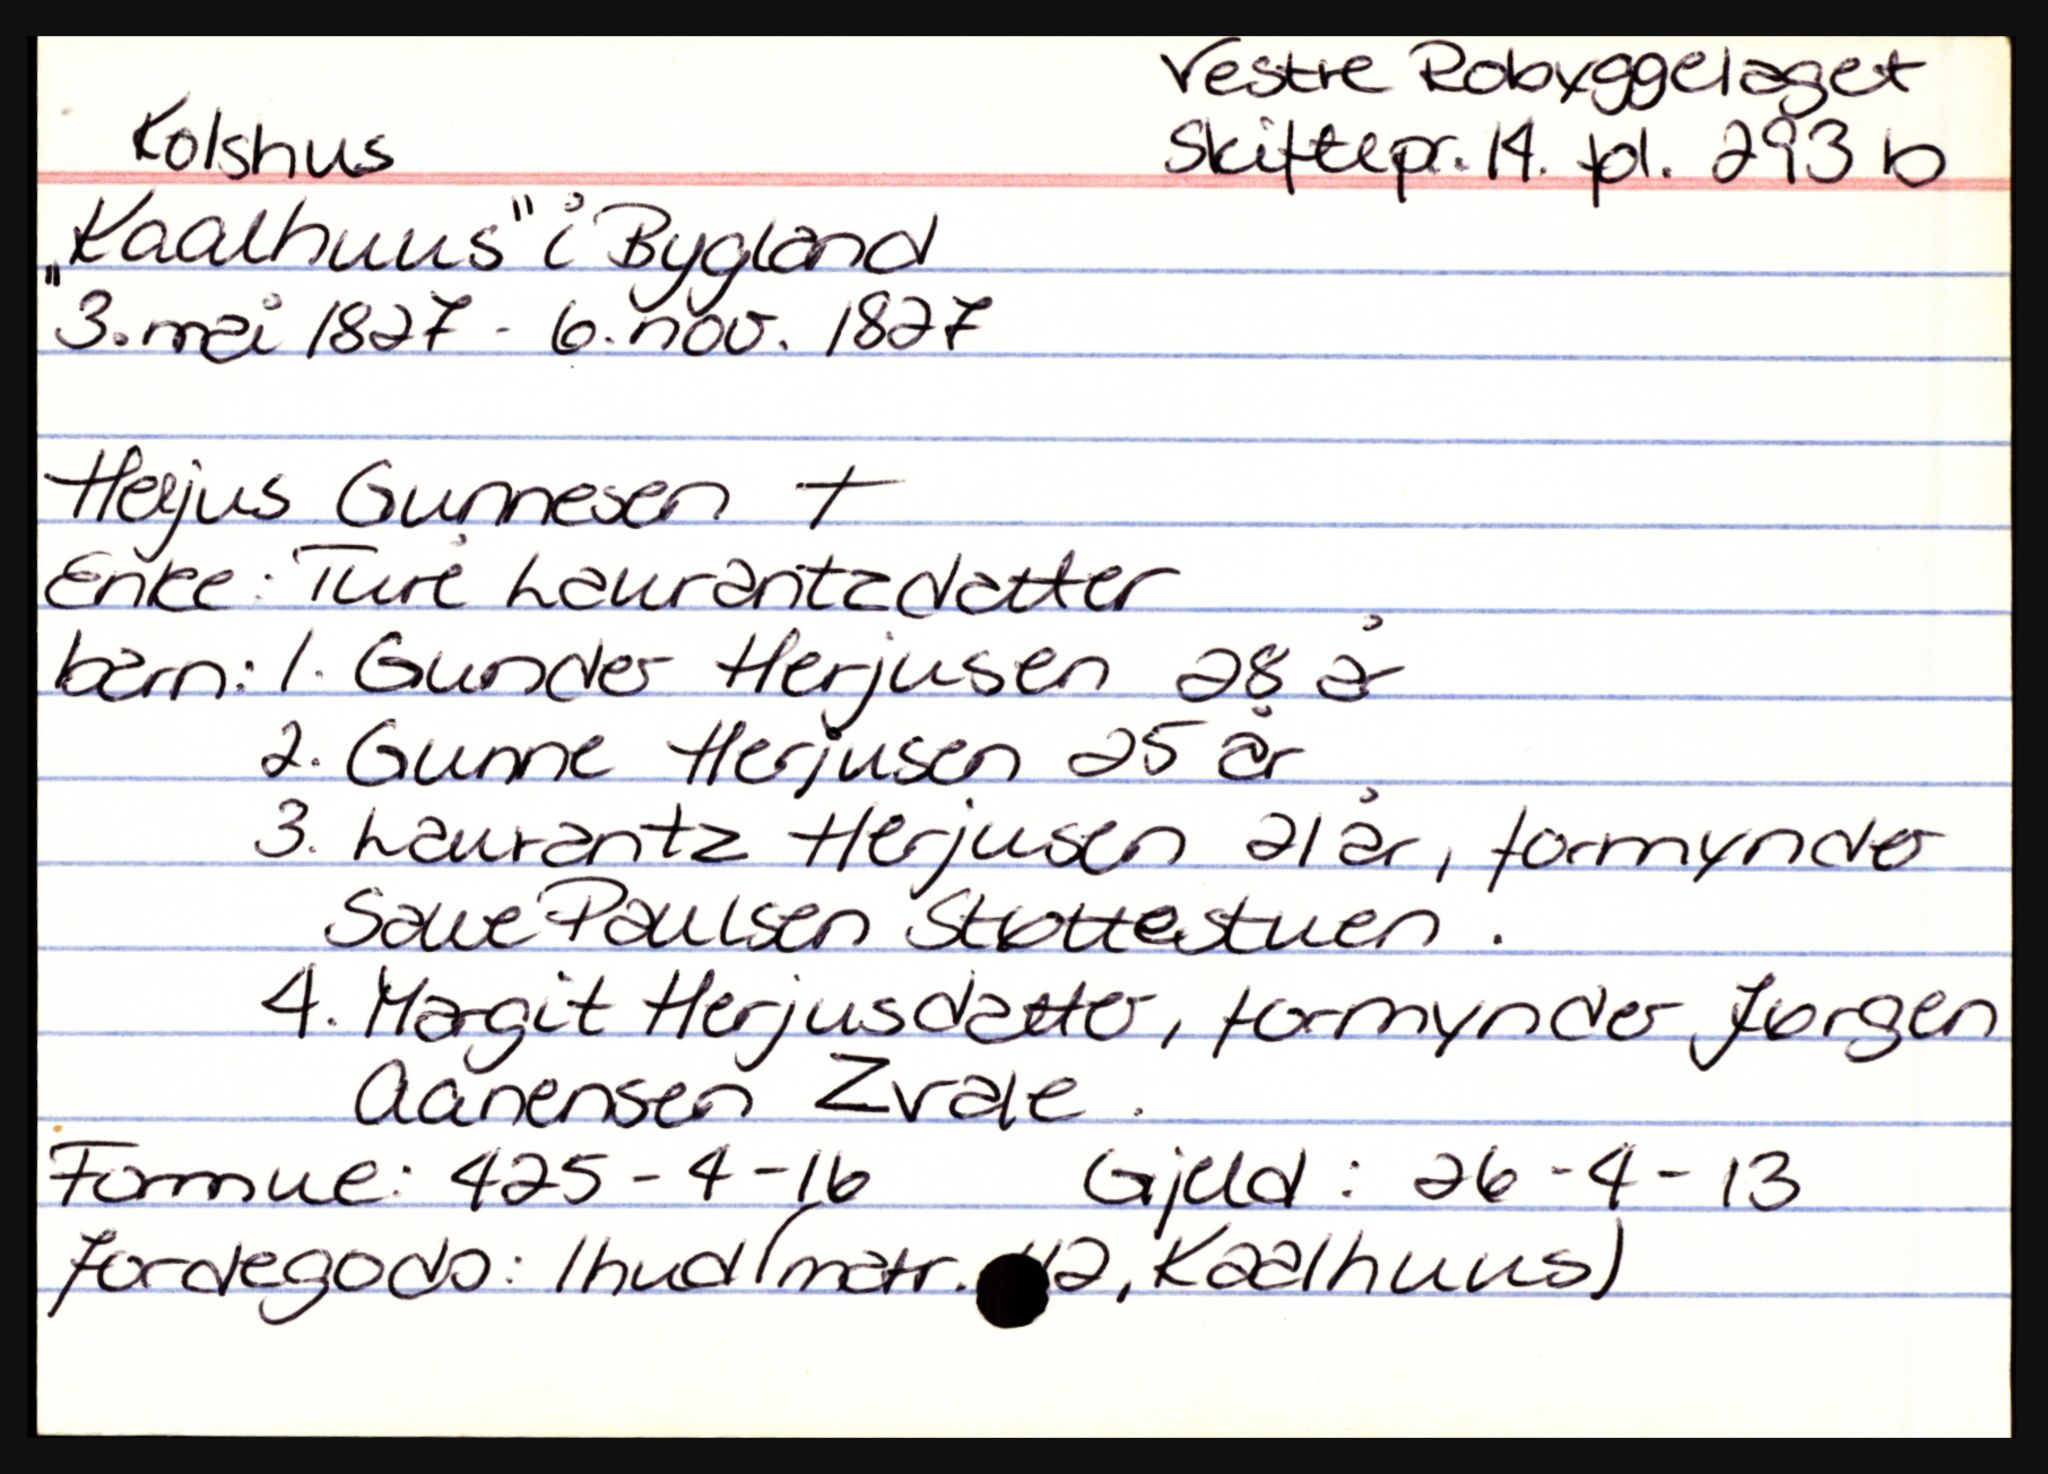 Vestre Robyggelaget
Kolshus Skiftepr. 14. fol. 293 b
"Kaalhuus" i Bygland
3. mai 1827 - 6. nov. 1827
Herjus Gunnesen †
Enke: Turi Laurantzdatter
barn: 1. Gunder Herjusen 28 år
2. Gunne Herjusen 25 år
3. Laurantz Herjusen 21 år, formynder
Salve Paulsen Støttestuen.
4. Margit Herjusdatter, formynder Jørgen
Aanensen Zvale.
Formue: 425-4-16 Gjeld: 26-4-13
Jordegods: 1 hud (matr. 42, Kaalhuus)